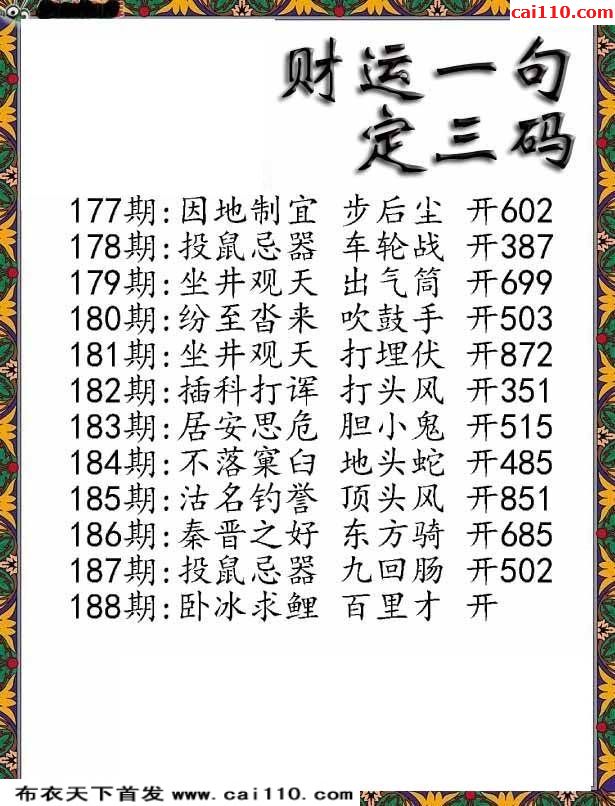 cai110.com
财运一句
定三码
177期:因地制宜 步后尘 开602
178期:投鼠忌器 车轮战 开387
179期:坐井观天 出气筒 开699
180期:纷至沓来 吹鼓手 开503
181期:坐井观天 打埋伏 开872
182期:插科打诨 打头风 开351
183期:居安思危 胆小鬼 开515
184期:不落窠臼 地头蛇 开485
185期:沽名钓誉 顶头风 开851
186期:秦晋之好 东方骑 开685
187期:投鼠忌器 九回肠 开502
188期:卧冰求鲤 百里才 开
布衣天下首发 www.cai110.com